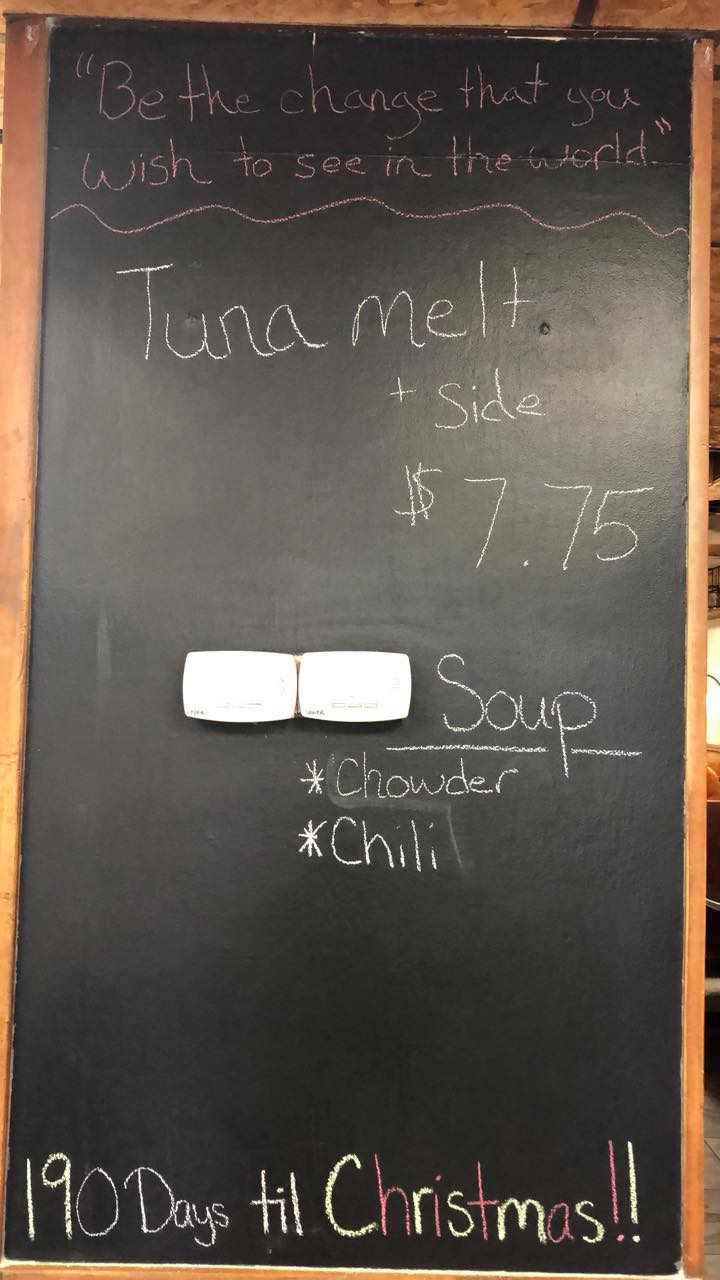 "Be the change that you
wish to see in the world"
Tuna melt
+ Side
$7.75
Soup
*Chowder
*Chili
UPPER
LOWER
190 Days til Christmas!!